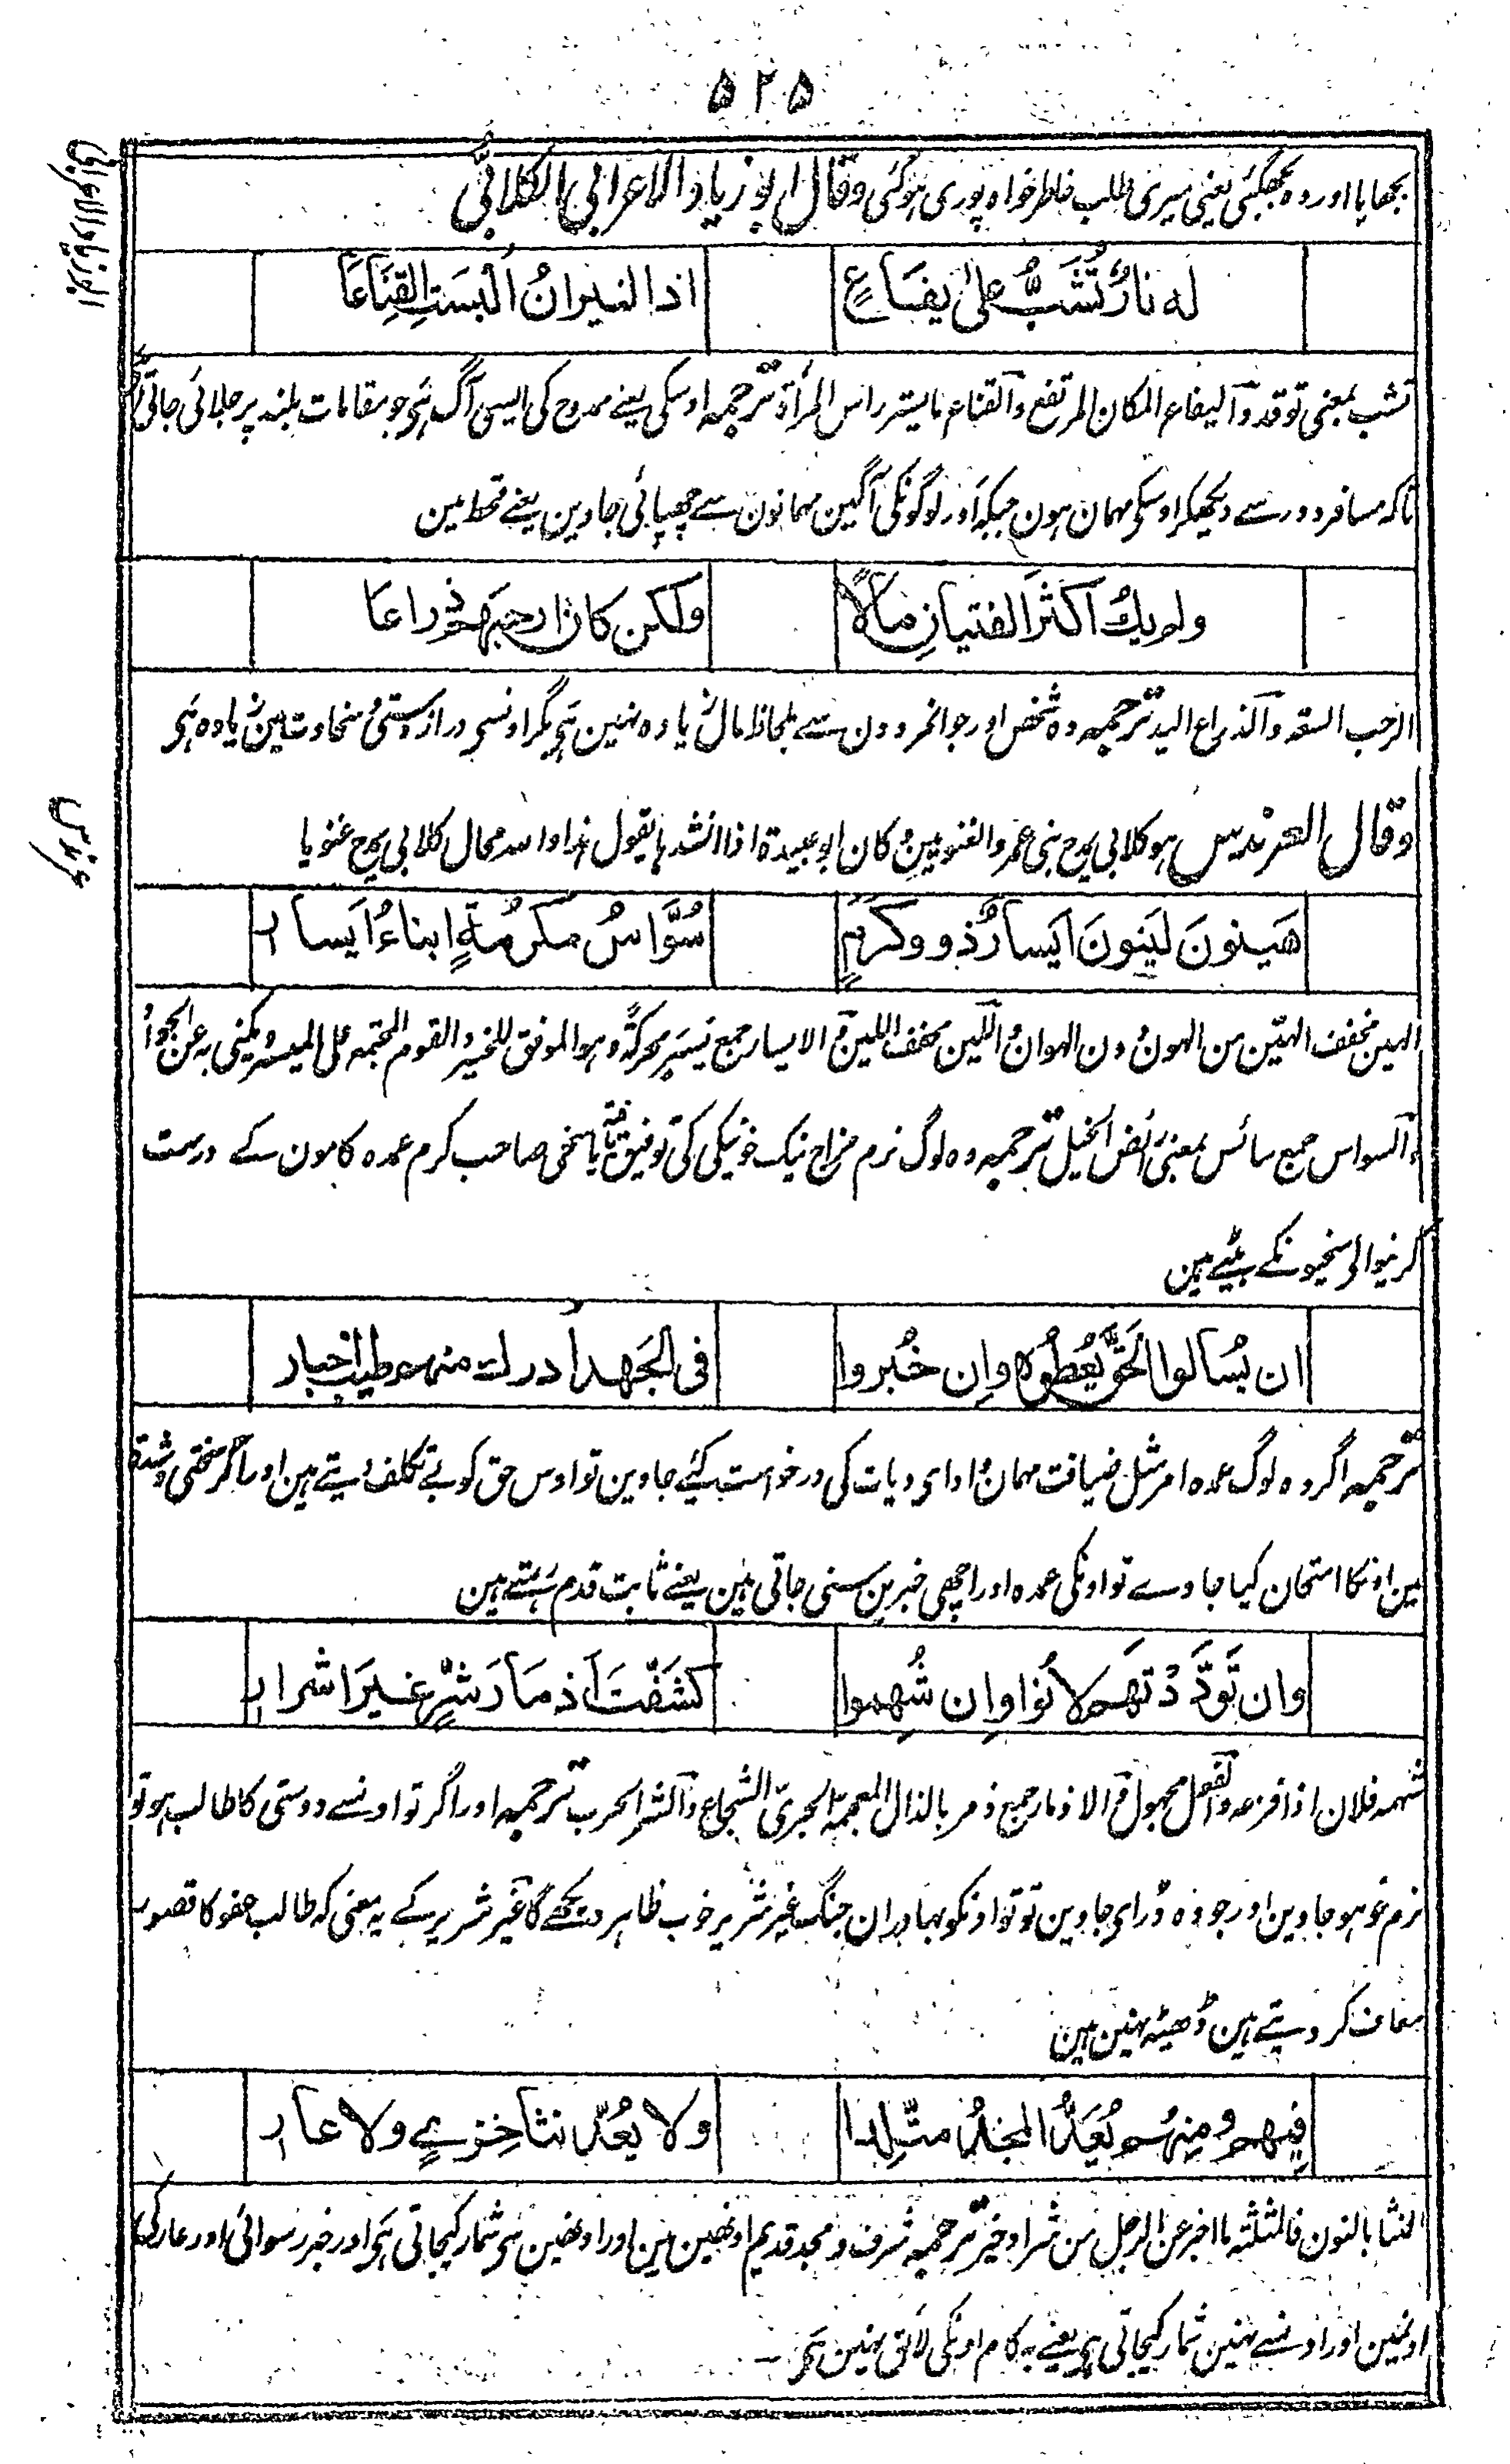 ۵۲۵
بجھایا اور وہ بجھگئی یعنی میری طلب خاطر خواہ پوری ہوگئی وقال ابو زیاد الاعرابی الکلابیُّ
ابو زیاد الاعرابی
له نارٌ تُشَبُّ علیٰ یفَاعٍ اذا النیرانُ اُلْبِسَتِ القِنَاعَا
تشب بمعنی توقد وآلیفاع المکان المرتفع وآلقناع مایستر راس المرأة ترجمہ اوسکی یعنے ممدوح کی ایسی آگ ہی جو مقامات بلند پر جلائی جاتی ہی
تاکہ مسافر دور سے دیکھکر اوسکی مہمان ہون جبکہ اور لوگونکی آگین مہمانون سے چھپائی جاوین یعنے قحط مین
ولم یكُ اکثرَ الفتیانِ مالًا ولکن کان ارحبهم ذراعَا
الرحب السعة وآلذراع الید ترجمہ وہ شخص اور جوانمردون سے بلحاظ مال زیادہ نہین ہی مگر اونسی دراز دستی و سخاوت مین زیادہ ہی
وقال العرندس ہو کلابی یمدح بنی عمرو الغنویین و کان ابو عبیدة اذا انشدہا یقول ہذا واللہ محال کلابی یمدح غنویا
عرندس
هَینونَ لَینونَ ایَسارٌ ذوو کَرَمٍ سُوَّاسُ مکرُمةٍ ابناءُ اَیسارِ
الہین مخفف الہیّن من الہون دون الہوان و اللین مخفف اللیّن و الایسار جمع یَسَر محرکةً و ہو الموفق للخیر و القوم المجتمعة علی المیسر و یکنی بہ عن الجواد
و آلسواس جمع سائس بمعنی رائض الخیل ترجمہ وہ لوگ نرم مزاج نیک خو نیکی کی توفیق یافتہ یا سخی صاحب کرم عمدہ کامون کے درست
کرنیوالی سخیونکے بیٹے ہین
ان یُسألوا الحَقَّ یُعْطُوه وان خُبروا فی الجَهد اُدرك منهم طیبُ اخبار
ترجمہ اگر وہ لوگ عمدہ امر مثل ضیافت مہمان و ادای دیات کی درخواست کیئے جاوین تو اوس حق کو بے تکلف دیتے ہین اور اگر سختی و شدت
مین اونکا امتحان کیا جاوے تو اونکی عمدہ اور اچھی خبرین سنی جاتی ہین یعنے ثابت قدم رہتے ہین
وان تَوَدَّدْتَهم لانُوا وان شُهِموا کشَفْتَ اَذمَارَ شَرٍّ غیرَ اشرارِ
شہمہ فلان اذا افزعہ والفعل مجہول و الاذمار جمع ذمر بالذال المعجمة الجریّ الشجاع و آلشر الحرب ترجمہ اور اگر تو اونسے دوستی کا طالب ہو تو
نرم خو ہو جاوین اور جو وہ ڈرای جاوین تو تو اونکو بہادران جنگ غیر شریر خوب ظاہر دیکھے گا غیر شریر کے یہ معنی کہ طالب عفو کا قصور
معاف کر دیتے ہین ڈھیٹہ نہین ہین
فِیهم ومِنهُم یُعَدُّ المجدُ متَّلِدا ولا یُعَدُّ نثا خِزیٍ ولا عارِ
النثا بالنون فالمثلثة ما اخبر عن الرجل من شر او خیر ترجمہ شرف و مجد قدیم اونھین مین اور اونھین سی شمار کیجاتی ہی اور خبر رسوائی اور عار کی
اونمین اور اونسے نہین شمار کیجاتی ہی یعنے یہ کام اونکی لائق نہین ہی